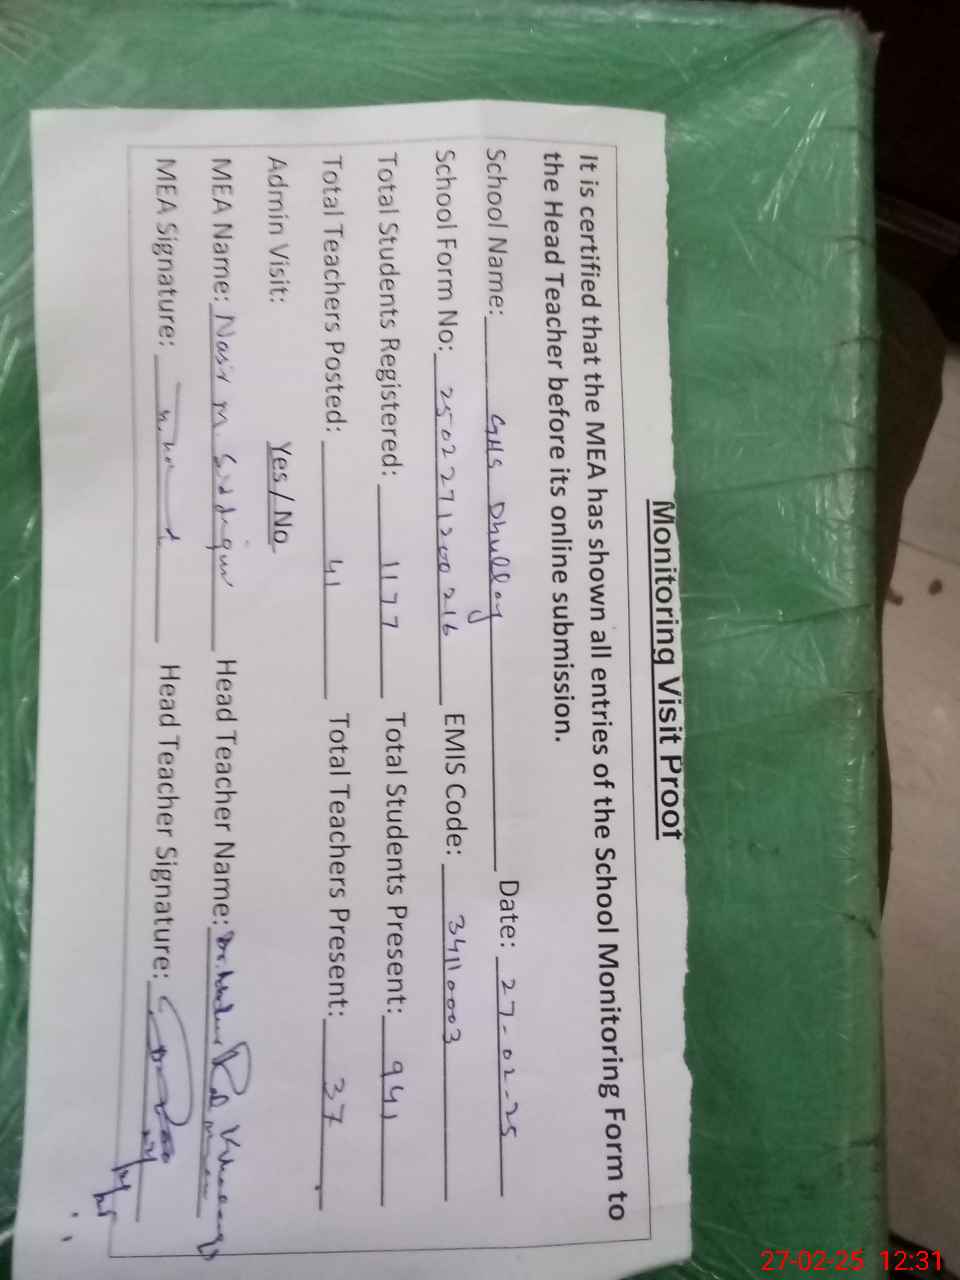 Monitoring Visit Proof
It is certified that the MEA has shown all entries of the School Monitoring Form to
the Head Teacher before its online submission.
School Name: GHS Dhullay Date: 27-02-25
School Form No: 2502271200216 EMIS Code: 34110003
Total Students Registered: 1177 Total Students Present: 941
Total Teachers Posted: 41 Total Teachers Present: 37
Admin Visit: Yes / No
MEA Name: Nasir M. Siddiqui Head Teacher Name: Dr.
MEA Signature: Head Teacher Signature:
27-02-25 12:31